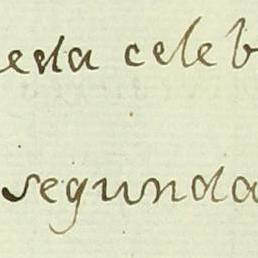 esta celeb
segunda